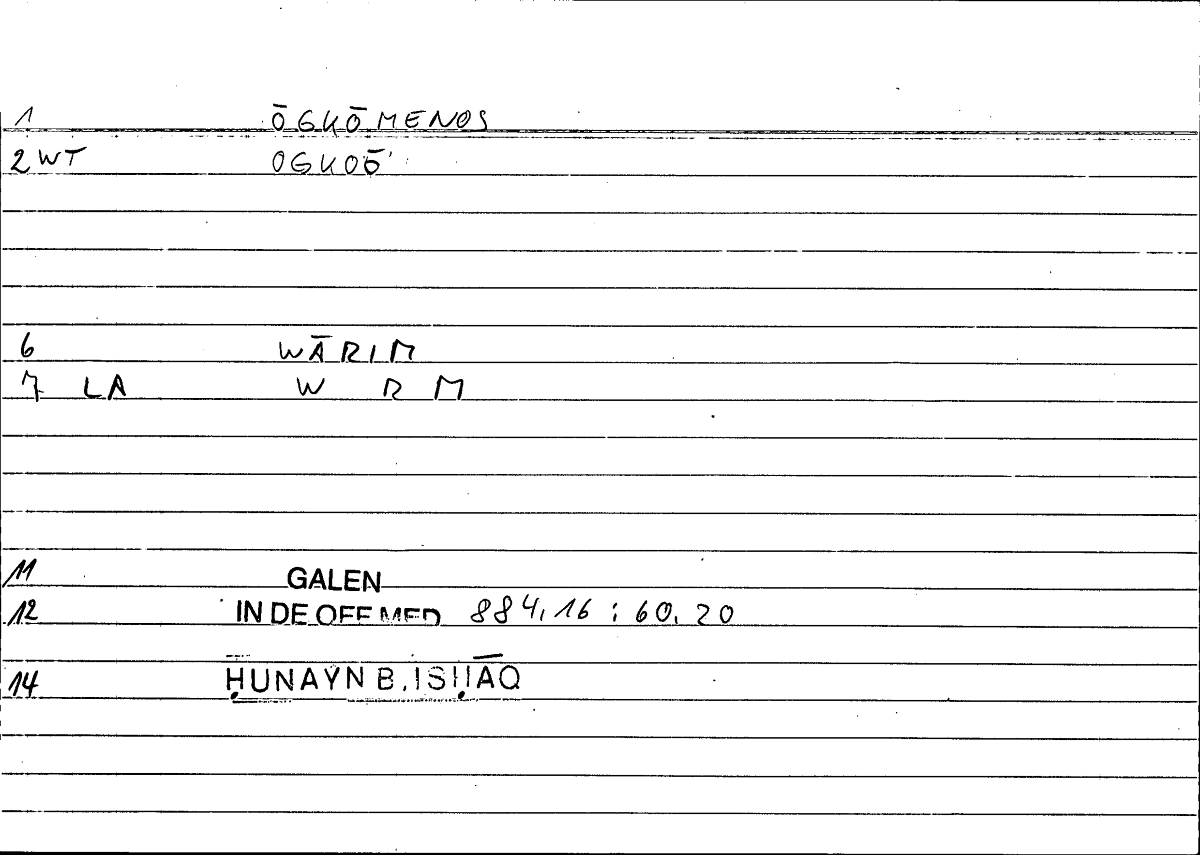 1 ŌGKŌMENOS
2 WT OGKOŌ
6 WĀRIM
7 LA W R M
11 GALEN
12 IN DE OFF MED 884,16 : 60,20
14 ḤUNAYN B. ISḤĀQ